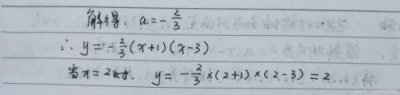 解得, a = -2/3
∴ y = -2/3 (x+1)(x-3)
当x=2时, y = -2/3 ×(2+1)×(2-3) = 2